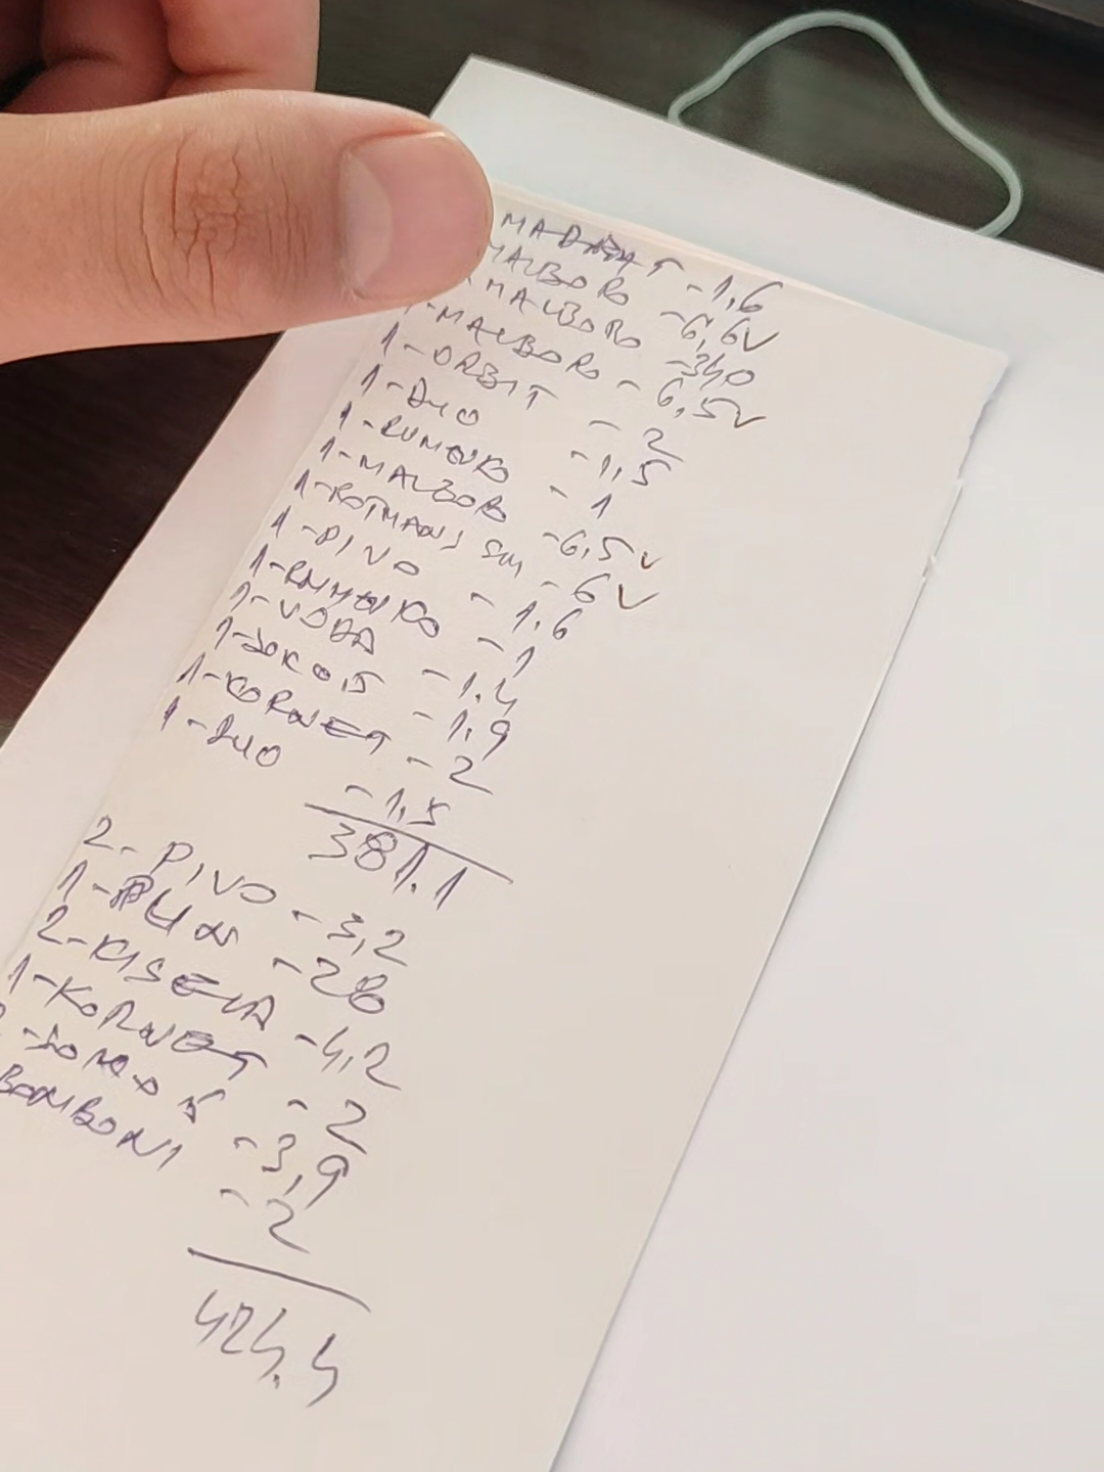 - 1,6
MALBORO - 6,6 V
- MALBORO - 340
1 - MALBORO - 6,5 V
1 - ORBIT - 2
1 - DUO - 1,5
1 - RUMENKO - 1
1 - MALBORO - 6,5 V
1 - ROTMANS SM - 6 V
1 - PIVO - 1.6
1 - RUMENKO - 1
1 - VODA - 1.4
1 - SOK 0,5 - 1.9
1 - KORNET - 2
1 - DUO - 1,5
381.1
2 - PIVO - 3,2
1 - - 28
2 - KISELA - 4,2
1 - KORNET - 2
- 3,9
BOMBONI - 2
424.4